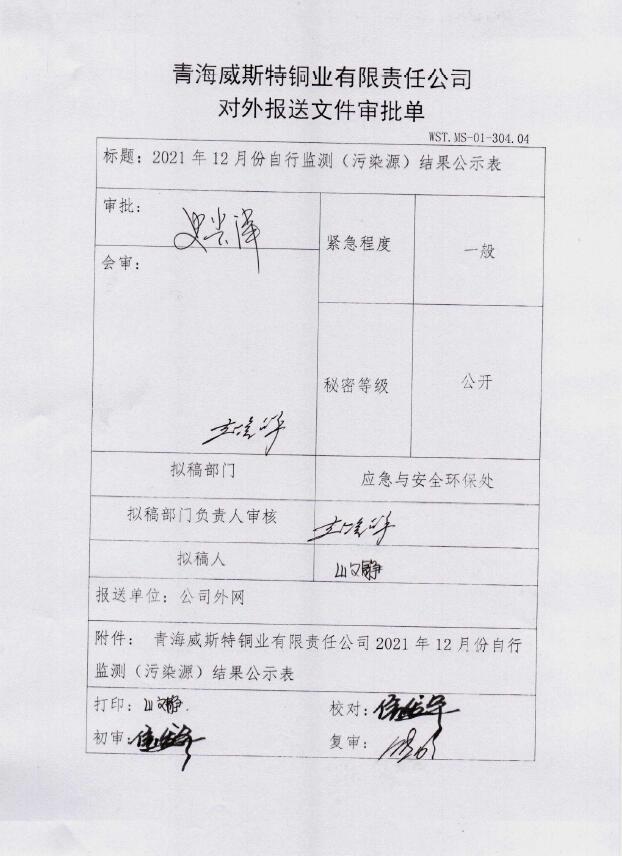 青海威斯特铜业有限责任公司
对外报送文件审批单
WST.MS-01-304.04
标题：2021 年 12 月份自行监测（污染源）结果公示表
审批：
紧急程度
一般
会审：
秘密等级
公开
拟稿部门
应急与安全环保处
拟稿部门负责人审核
拟稿人
山文静
报送单位：公司外网
附件： 青海威斯特铜业有限责任公司 2021 年 12 月份自行
监测（污染源）结果公示表
打印：山文静
校对：
初审：
复审：